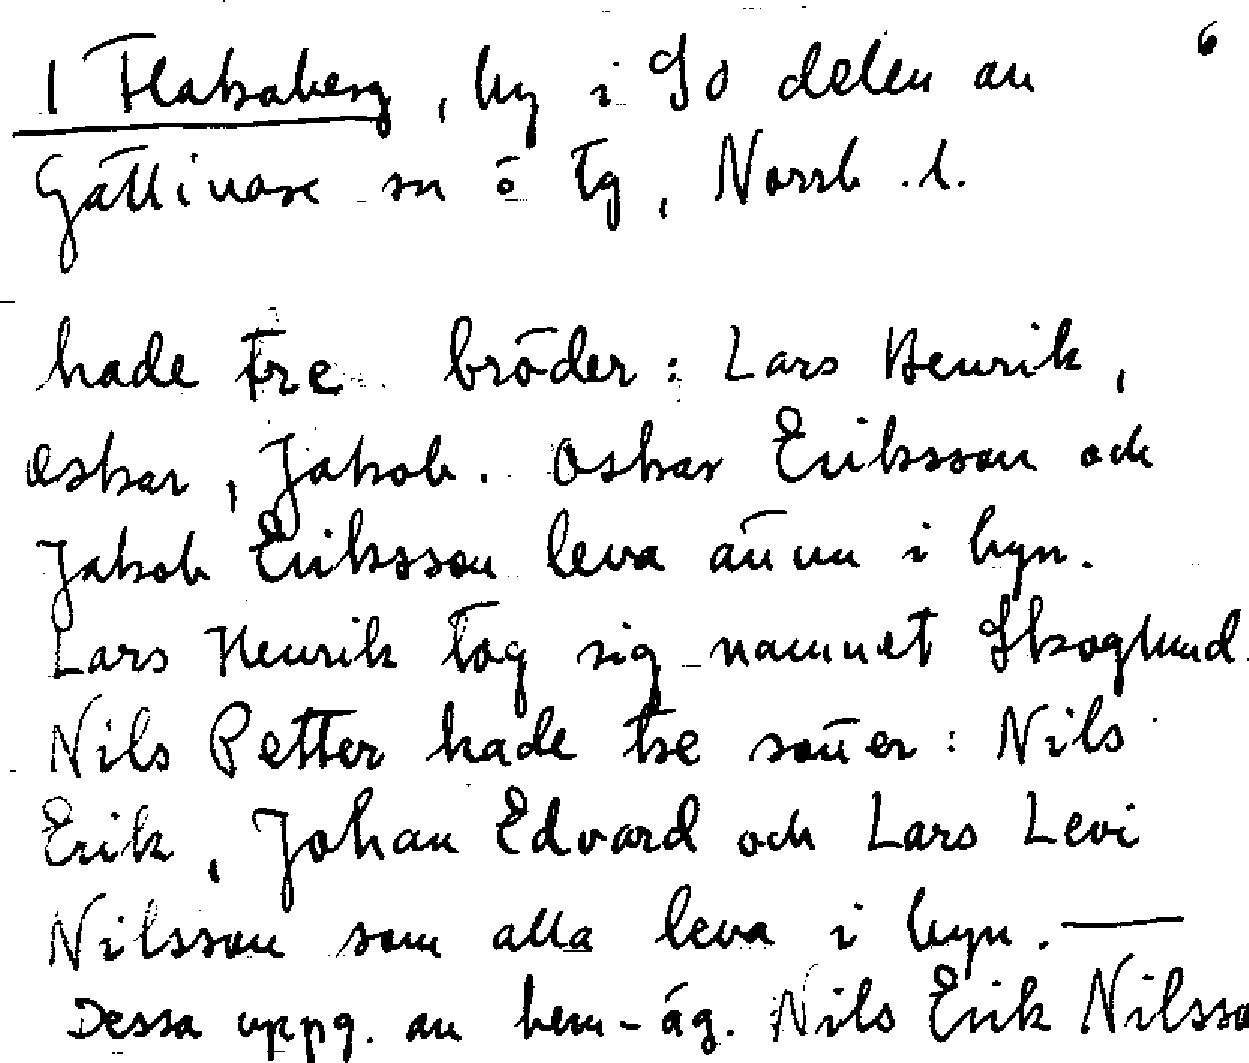 6
1 Flakaberg, by i SO delen av
Gällivare sn o tg, Norrb. l.
hade tre bröder: Lars Henrik,
Oskar, Jakob. Oskar Eriksson och
Jakob Eriksson leva ännu i byn.
Lars Henrik tog sig namnet Skoglund.
Nils Petter hade tre söner: Nils
Erik, Johan Edvard och Lars Levi
Nilsson som alla leva i byn. —
Dessa uppg. av hem-äg. Nils Erik Nilsso